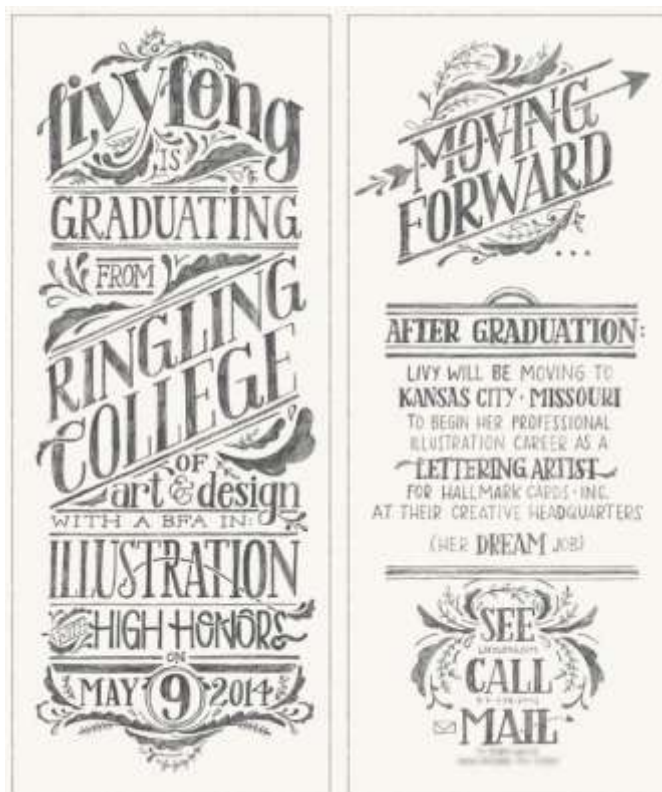 Livy Long
IS
GRADUATING
FROM
RINGLING
COLLEGE
OF
art & design
WITH A BFA IN:
ILLUSTRATION
WITH HIGH HONORS
ON
MAY 9 2014
MOVING
FORWARD
...
AFTER GRADUATION:
LIVY WILL BE MOVING TO
KANSAS CITY · MISSOURI
TO BEGIN HER PROFESSIONAL
ILLUSTRATION CAREER AS A
LETTERING ARTIST
FOR HALLMARK CARDS · INC.
AT THEIR CREATIVE HEADQUARTERS
(HER DREAM JOB)
SEE
CALL
MAIL